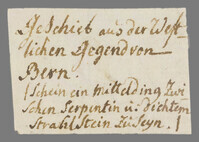 Geschieb aus der West-
lichen Gegend von
Bern.
/ Schein ein mittelding Zwi
schen Serpentin u: dichtem
Strahlstein zu seyn. /